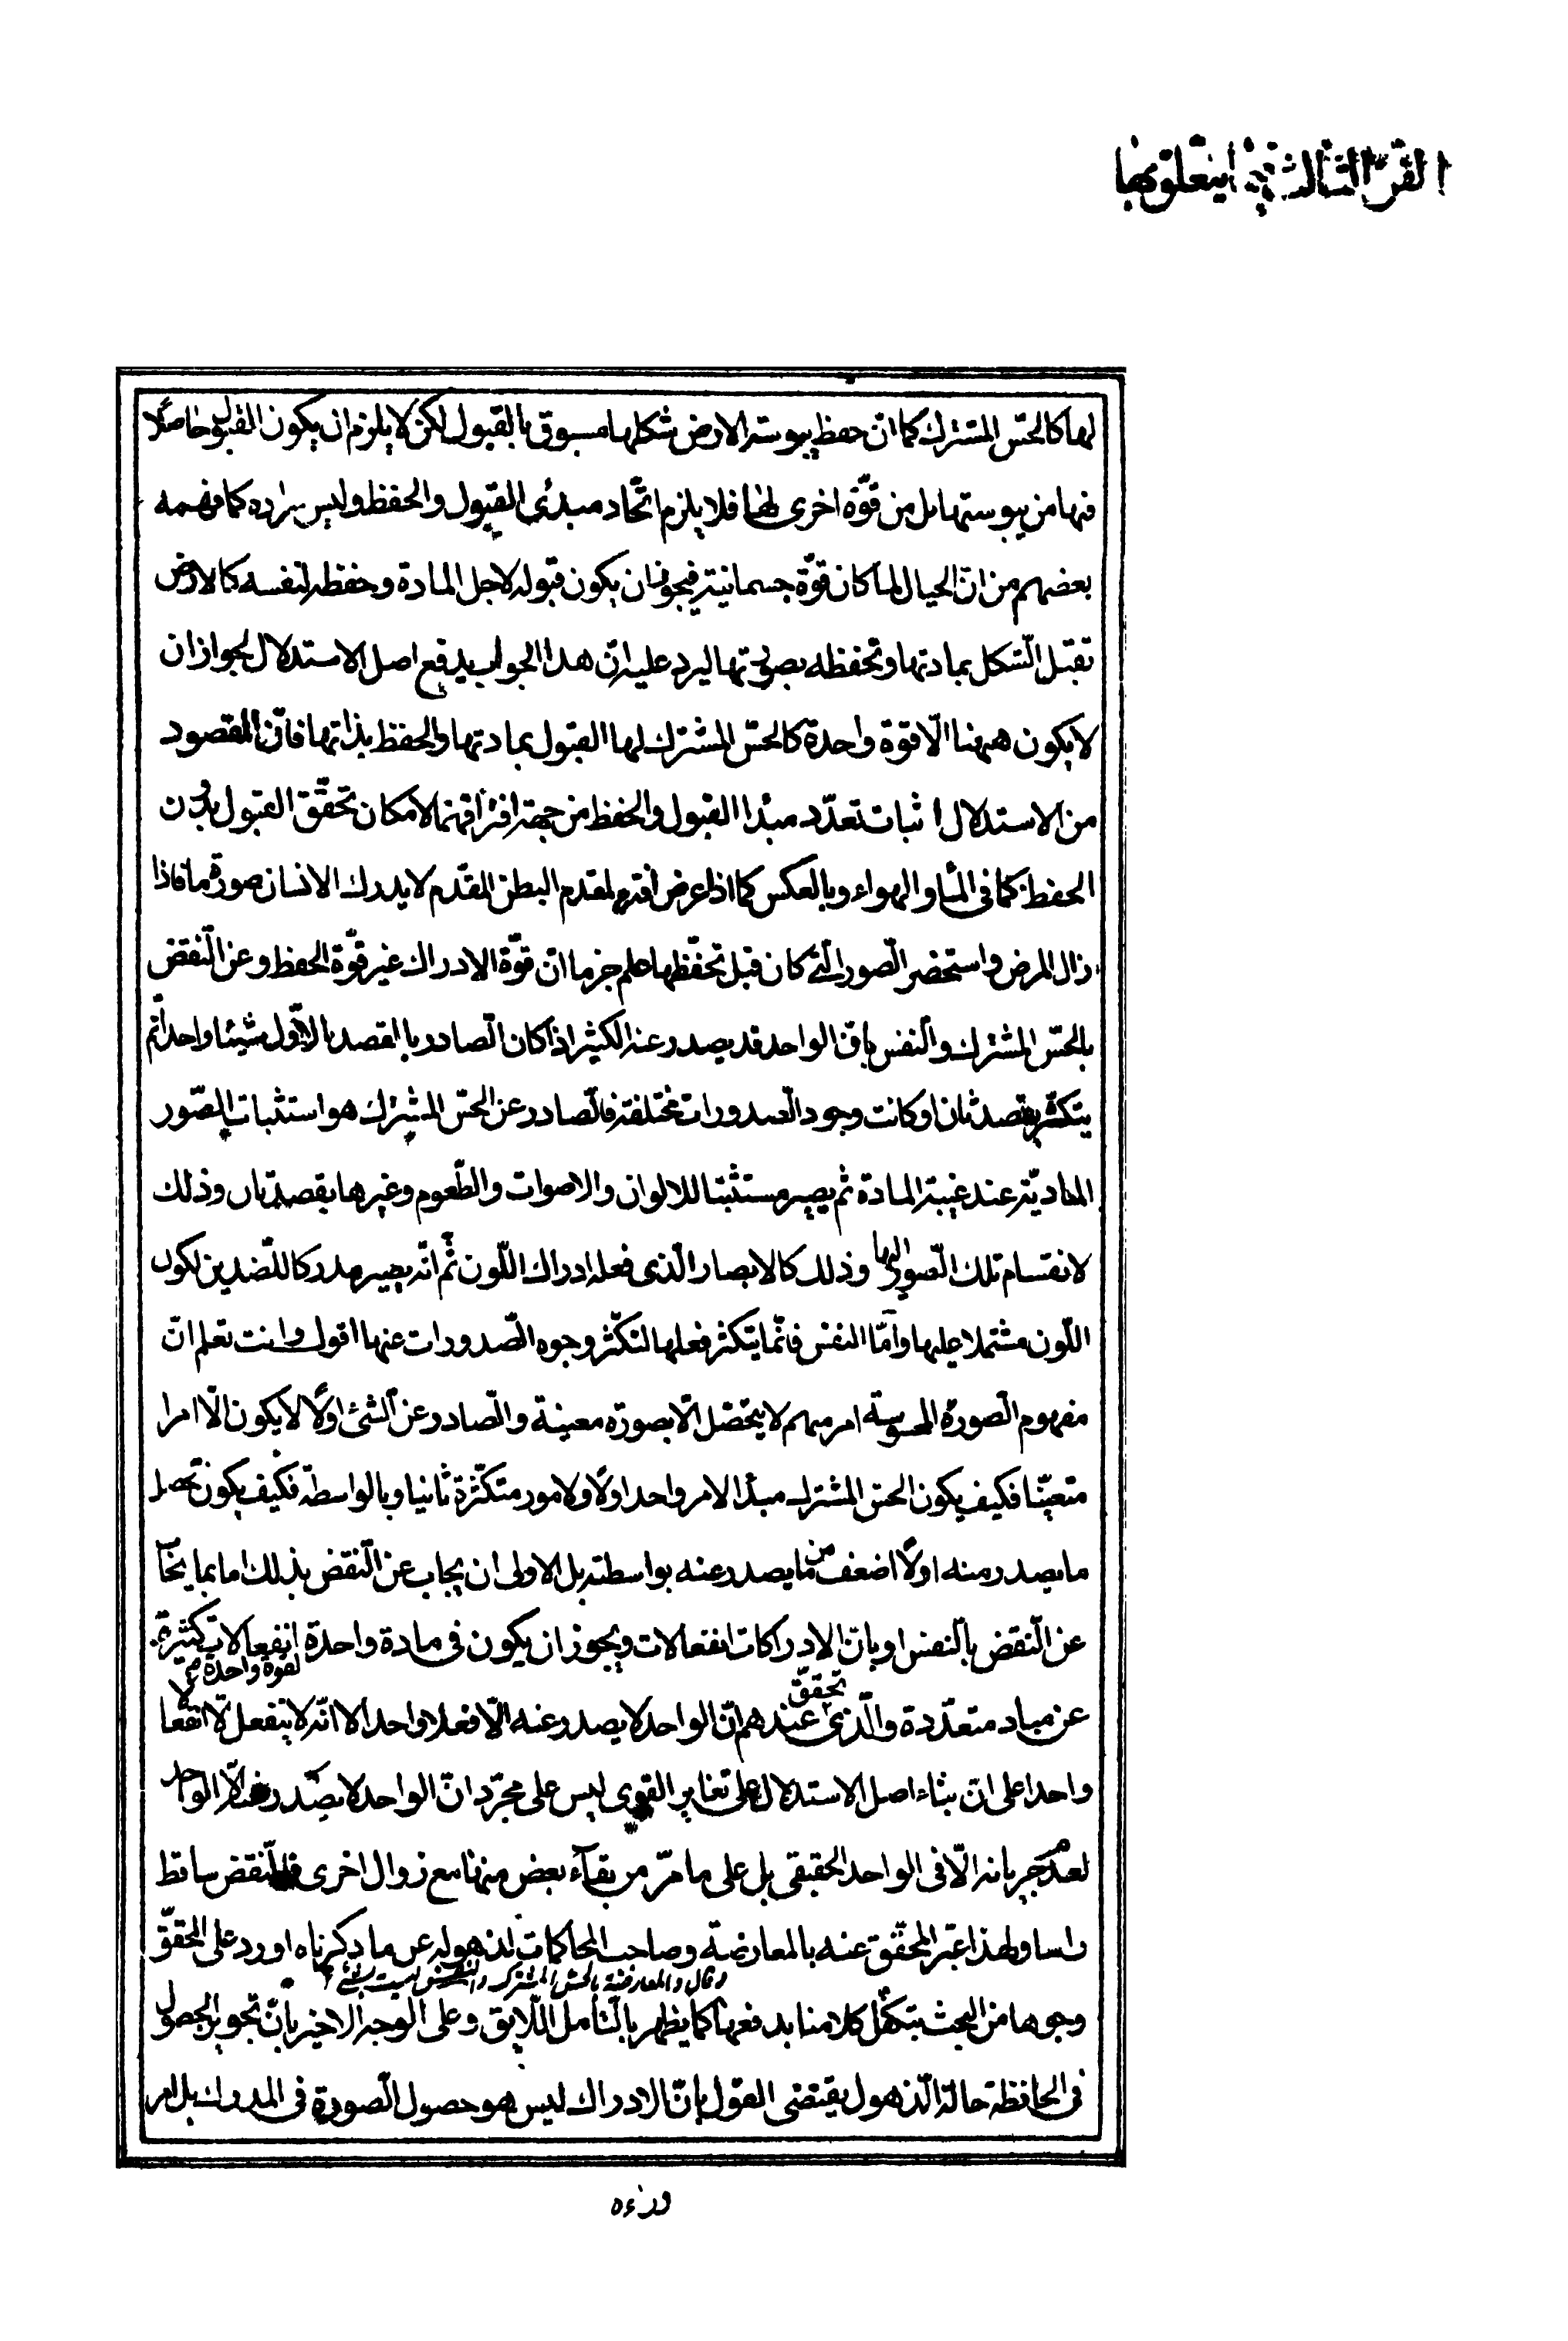 الفن الثالث فيما يتعلق بها
لها كالحسّ المشترك كما انّ حفظ يبوسة الارض شكلها مسبوق بالقبول لكن لا يلزم ان يكون القبول حاصلا
فيها من يبوستها بل من قوّة اخرى لها فلا يلزم اتّحاد مبدئى القبول والحفظ وليس مراده كما فهمه
بعضهم من انّ الخيال لما كان قوّة جسمانية فيجوز ان يكون قبوله لاجل المادة وحفظه لنفسه كالارض
تقبل الشكل بمادتها وتحفظه بصورتها ليرد عليه انّ هذا الجواب يدفع اصل الاستدلال لجواز ان
لا يكون ههنا الّا قوة واحدة كالحسّ المشترك لها القبول بمادتها والحفظ بذاتها فانّ المقصود
من الاستدلال اثبات تعدّد مبدا القبول والحفظ من جهة افتراقهما لامكان تحقّق القبول بدون
الحفظ كما فى الماء والهواء وبالعكس كما اذا عرض افة لمقدم البطن المقدّم لا يدرك الانسان صورة ما فاذا
زال المرض واستحضر الصور الّتى كان قبل تحفّظها علم جزما انّ قوّة الادراك غير قوّة الحفظ وعن النّقض
بالحسّ المشترك والنّفس بانّ الواحد قد يصدر عنه الكثير اذا كان الصادر بالقصد الاوّل شيئا واحدا ثم
يتكثّر بقصد ثان او كانت وجوه الصدورات مختلفة فالصادر عن الحسّ المشترك هو استثبات الصّور
المادّية عند غيبة المادة ثم يصير مستثبتا للالوان والاصوات والطّعوم وغيرها بقصد ثان وذلك
لانقسام تلك الصور اليها وذلك كالابصار الّذى فعله ادراك اللّون ثمّ انّه يصير مدركا للضدين لكون
اللّون مشتملا عليها وامّا النفس فانّما يتكثر فعلها لتكثّر وجوه الصّدورات عنها اقول وانت تعلم انّ
مفهوم الصورة المحسوسة امر مبهم لا يتحصّل الّا بصورة معينة والصّادر عن الشئ اوّلا لا يكون الّا امرا
متعيّنا فكيف يكون الحسّ المشترك مبدا لامر واحد اوّلا ولامور متكثّرة ثانيا وبالواسطة فكيف يكون تحصل
ما يصدر منه اوّلا اضعف من ما يصدر عنه بواسطته بل الاولى ان يجاب عن النّقض بذلك اما بما يجاب
عن النّقض بالنفس او بانّ الادراكات انفعالات ويجوز ان يكون فى مادة واحدة لقوة واحدة انفعالات كثيرة
عن مباد متعدّدة والّذى تحقّق عندهم انّ الواحد لا يصدر عنه الّا فعلا واحدا لا انّه لا ينفعل الّا انفعالا
واحدا على انّ بناء اصل الاستدلال على تغاير القوى ليس على مجرّد انّ الواحد لا يصدر عنه الّا الواحد
لعدم جريانه الّا فى الواحد الحقيقى بل على ما مرّ من بقاء بعض منها مع زوال اخرى فالنّقض ساقط
راسا ولهذا عبّر المحقّق عنه بالمعارضة وصاحب المحاكمات لذهوله عن ما ذكرناه اورد على المحقّق
وقال والمعارضة بالحسّ المشترك والنّفس ليست بشئ
وجوها من البحث يتكفّل كلامنا بدفعها كما يظهر بالتّأمل اللّايق وعلى الوجه الاخير بانّ تجويز الحصول
فى الحافظة حالة الّذهول يقتضى القول بانّ الادراك ليس هو حصول الصّورة فى المدرك بل امر